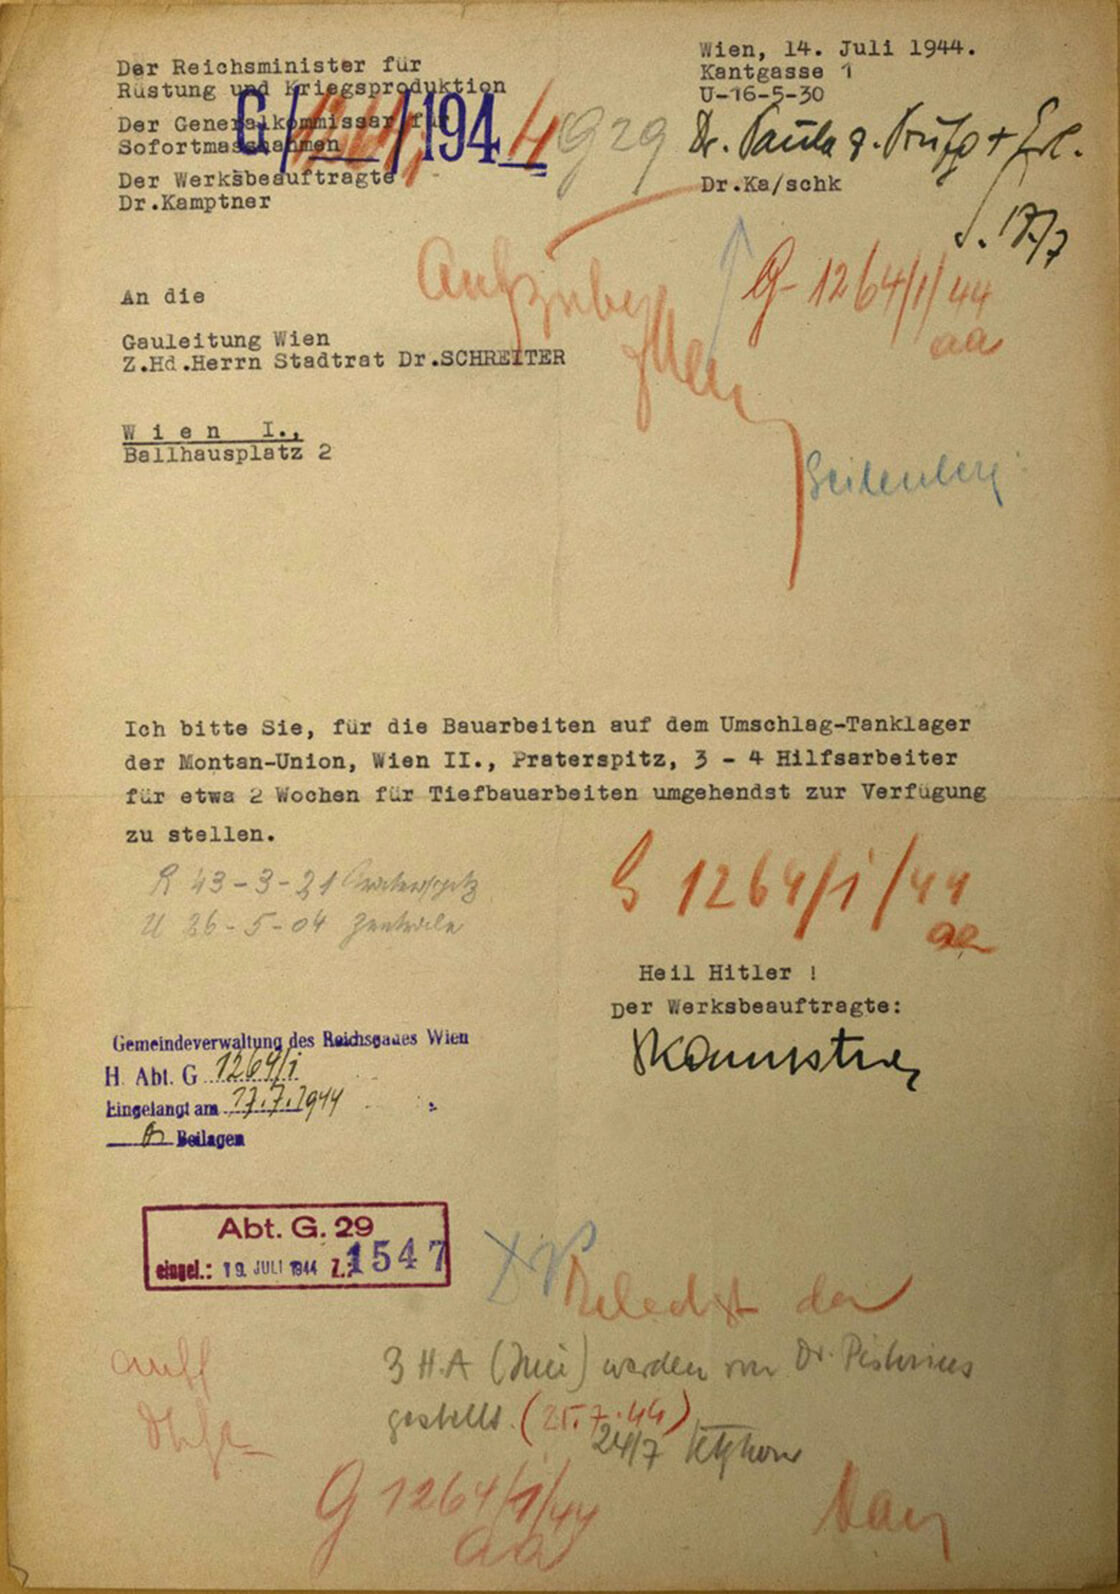 Der Reichsminister für
Rüstung und Kriegsproduktion
Der Generalkommissar für
Sofortmassnahmen
Der Werksbeauftragte
Dr.Kamptner
G/ /194 4
929
Wien, 14. Juli 1944.
Kantgasse 1
U-16-5-30
Dr. Paula z.
Dr.Ka/schk
17/7
G- 1264/1/44
aa
An die
Gauleitung Wien
Z.Hd.Herrn Stadtrat Dr.SCHREITER
Wien I.,
Ballhausplatz 2
Ich bitte Sie, für die Bauarbeiten auf dem Umschlag-Tanklager
der Montan-Union, Wien II., Praterspitz, 3 - 4 Hilfsarbeiter
für etwa 2 Wochen für Tiefbauarbeiten umgehendst zur Verfügung
zu stellen.
R 43-3-21 Praterspitz
U 26-5-04 Zentrale
G 1264/i/44
aa
Heil Hitler !
Der Werksbeauftragte:
Kamptner
Gemeindeverwaltung des Reichsgaues Wien
H. Abt. G 1264/i
Eingelangt am 17.7.1944
Beilagen
Abt. G. 29
eingel.: 19. JULI 1944 Z.: 1547
3 H.A werden von Dr.
gestellt. (25.7.44)
24/7
G 1264/1/44
aa